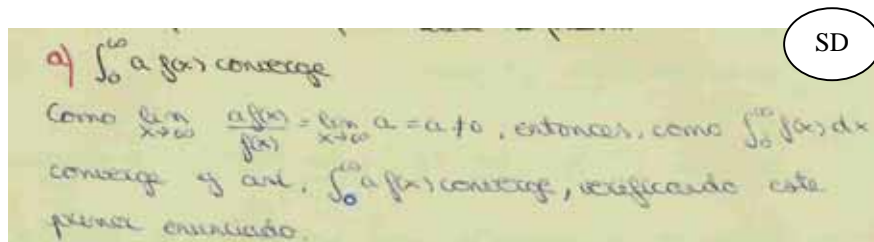 SD
a) ∫₀^∞ a f(x) converge
Como lim x→∞ a f(x)/f(x) = lim x→∞ a = a ≠ 0, entonces, como ∫₀^∞ f(x) dx
converge y así, ∫₀^∞ a f(x) converge, verificando este
primer enunciado.